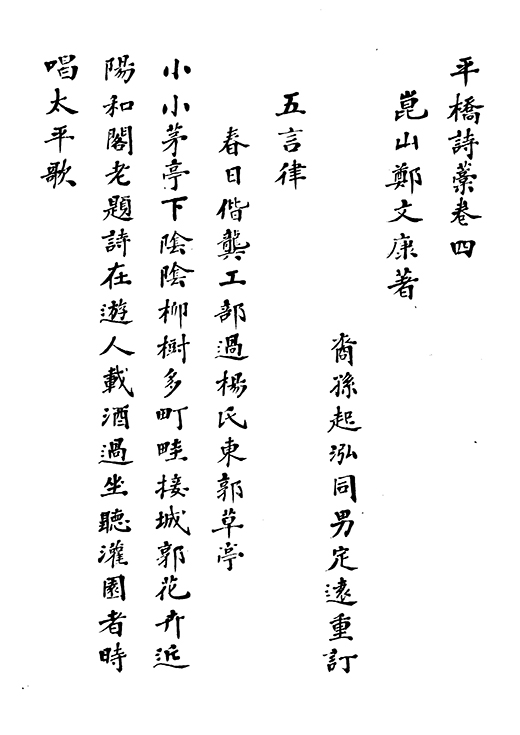 平橋詩藁卷四
崑山鄭文康著
裔孫起泓同男定遠重訂
五言律
春日偕龔工部過楊氏東郭草亭
小小茅亭下陰陰柳樹多町畦接城郭花卉近
陽和閣老題詩在遊人載酒過坐聽灌園者時
唱太平歌